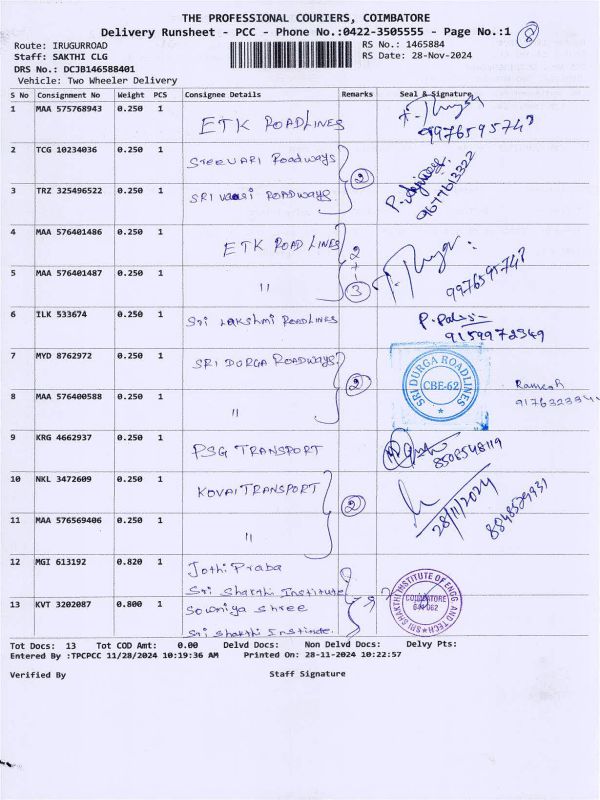 THE PROFESSIONAL COURIERS, COIMBATORE
Delivery Runsheet - PCC - Phone No.:0422-3505555 - Page No.:1
8
Route: IRUGURROAD
RS No.: 1465884
Staff: SAKTHI CLG
RS Date: 28-Nov-2024
DRS No.: DCJB146588401
Vehicle: Two Wheeler Delivery
S No Consignment No Weight PCS Consignee Details Remarks Seal & Signature
1 MAA 575768943 0.250 1 ETK ROADLINES
9976595748
2 TCG 10234036 0.250 1 SreeVARI Roadways
2
3 TRZ 325496522 0.250 1 SRI Vaari ROADWAYS
9677613322
4 MAA 576401486 0.250 1 ETK ROAD LINES 2
+
5 MAA 576401487 0.250 1 " 3
9976595748
6 ILK 533674 0.250 1 Sri Lakshmi ROADLINES
9159972349
7 MYD 8762972 0.250 1 SRI DURGA ROADWAYS
2
SRI DURGA ROADLINES
CBE-62
Ramesh
8 MAA 576400588 0.250 1 "
9 KRG 4662937 0.250 1 PSG TRANSPORT
8508548119
10 NKL 3472609 0.250 1 KOVAI TRANSPORT
2
28/11/2024
11 MAA 576569406 0.250 1 "
12 MGI 613192 0.820 1 Jothi Praba
Sri Shakthi Institute
2
SRI SHAKTHI INSTITUTE OF ENGG AND TECH
COIMBATORE
641 062
13 KVT 3202087 0.800 1 Sowniya Shree
Sri Shakthi Institute.
Tot Docs: 13 Tot COD Amt: 0.00 Delvd Docs: Non Delvd Docs: Delvy Pts:
Entered By :TPCPCC 11/28/2024 10:19:36 AM Printed On: 28-11-2024 10:22:57
Verified By Staff Signature